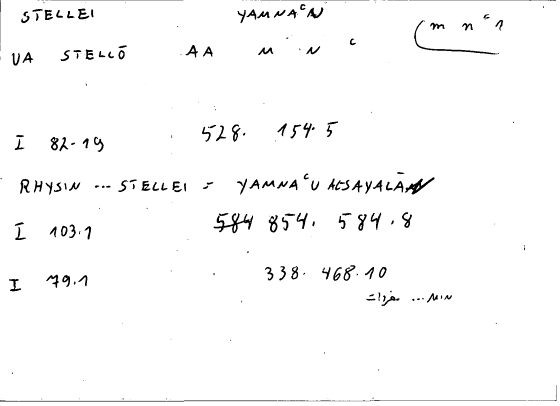 STELLEI YAMNAᶜN (m nᶜ1
UA STELLŌ AA M N ᶜ
I 82-19 528. 154.5
RHYSIN ... STELLEI = YAMNAᶜU ALSAYALĀN
I 103.1 584 854. 584.8
I 79.1 338. 468.10
مفردات ... MIN